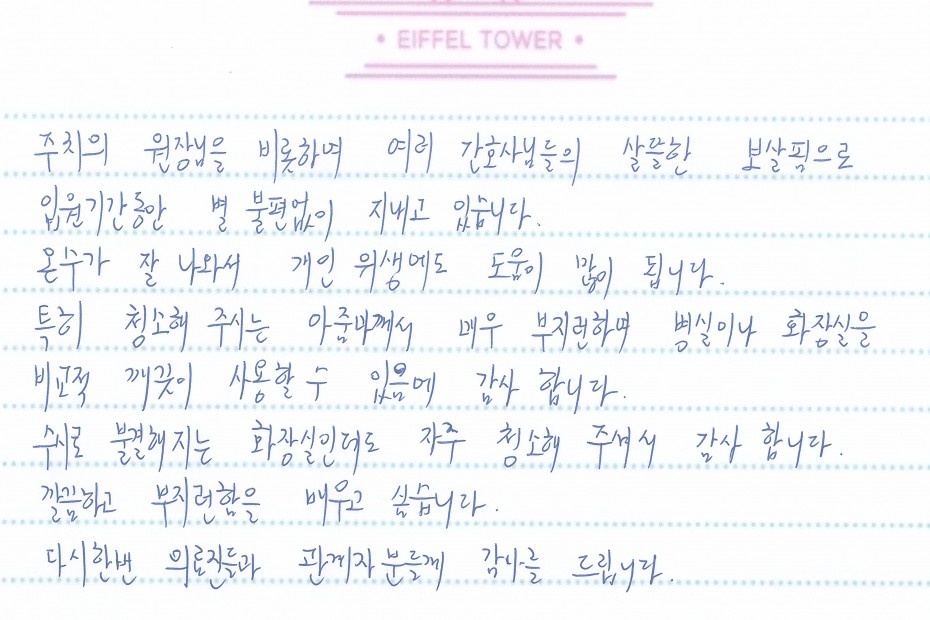 • EIFFEL TOWER •
주치의 원장님을 비롯하며 여러 간호사님들의 살뜰한 보살핌으로
입원기간동안 별 불편없이 지내고 있습니다.
온수가 잘 나와서 개인 위생에도 도움이 많이 됩니다.
특히 청소해 주시는 아줌마께서 매우 부지런하며 병실이나 화장실을
비교적 깨끗이 사용할 수 있음에 감사 합니다.
수시로 불결해지는 화장실인데도 자주 청소해 주셔서 감사 합니다.
깔끔하고 부지런함을 배우고 싶습니다.
다시한번 의료진들과 관계자분들께 감사를 드립니다.